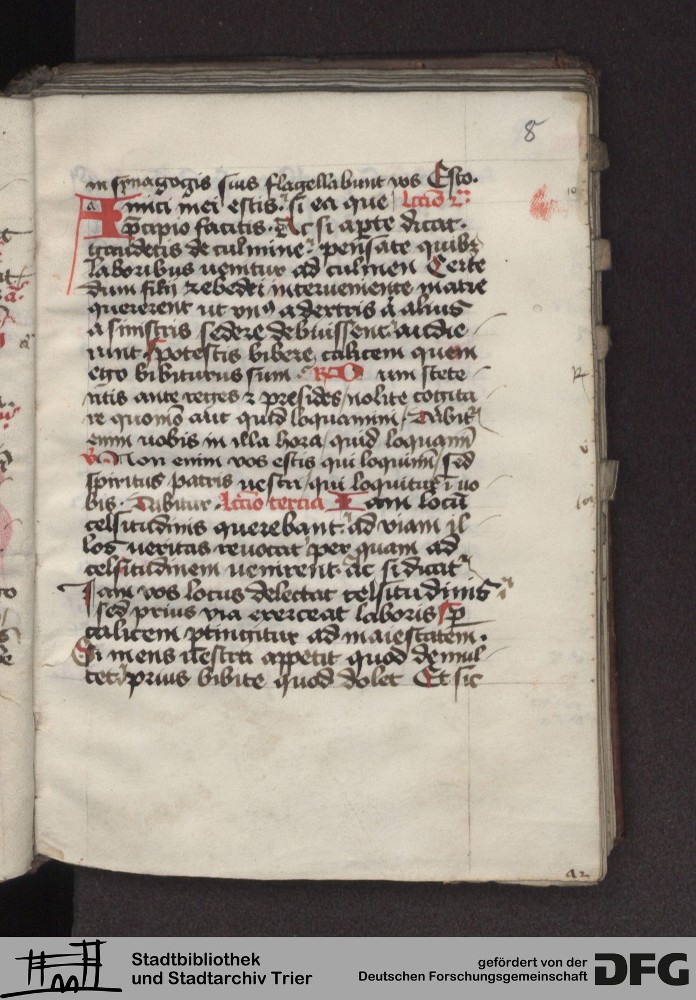 8
in synagogis suis flagellabunt vos Esto.
Amici mei estis si ea que lectio 2a
precipio facitis. Ac si apte dicat.
gaudetis de culmine pensate quibus
laboribus venitur ad culmen Certe
dum filii zebedei interveniente matre
quererent ut unus a dextris et alius
a sinistris sedere debuissent audie
runt potestis bibere calicem quem
ego bibiturus sum um stete
ritis ante reges et presides nolite cogita
re quomodo aut quid loquamini Dabitur
enim vobis in illa hora quid loquamini
Non enim vos estis qui loquimini sed
spiritus patris vestri qui loquitur in vo
bis. Dabitur. lectio tercia Iam locum
celsitudinis querebant ad viam il
los veritas revocat per quam ad
celsitudinem venirent ac si dicat
Iam vos locus delectat celsitudinis
sed prius via exerceat laboris per
calicem pertingitur ad maiestatem.
Si mens vestra appetit quod demul
cet prius bibite quod dolet Et sic
a2
Stadtbibliothek
und Stadtarchiv Trier
gefördert von der
Deutschen Forschungsgemeinschaft
DFG